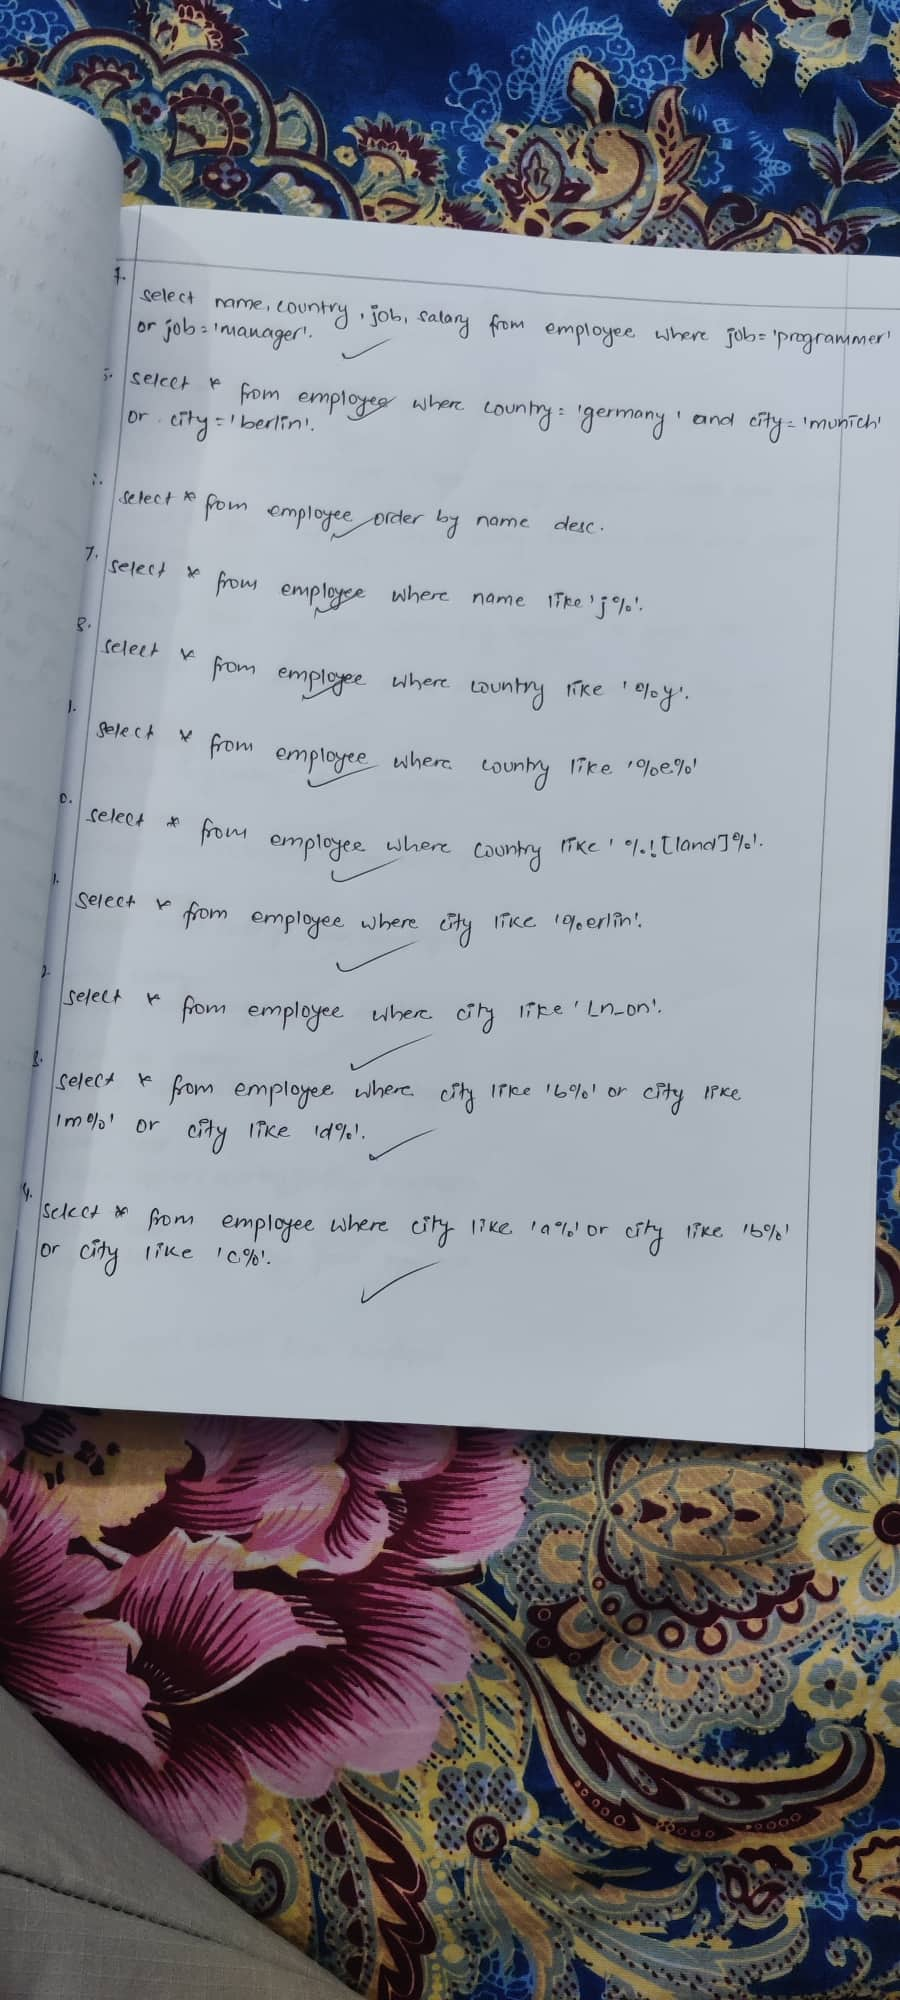 select name, country, job, salary from employee where job='programmer'
or job='manager'.
select * from employee where country='germany' and city='munich'
or city='berlin'.
select * from employee order by name desc.
7. select * from employee where name like 'j%'.
8. select * from employee where country like '%y'.
select * from employee where country like '%e%'
0. select * from employee where country like '%![land]%'.
1. select * from employee where city like '%erlin'.
2. select * from employee where city like 'Ln_on'.
3. select * from employee where city like 'b%' or city like
'm%' or city like 'd%'.
4. select * from employee where city like 'a%' or city like 'b%'
or city like 'c%'.